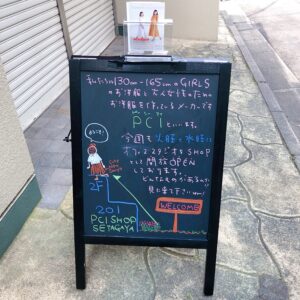 私たちは130cm〜165cmのGIRLS
のお洋服と大人な
お洋服を作っているメーカーです
PCI といいます。
今回も火曜と水曜に
オフィススタジオをSHOP
として開放OPEN
しております。
どんなものがあるんだ
見に来て下さい
ようこそ!
2F
201
PCI SHOP
SETAGAYA
WELCOME